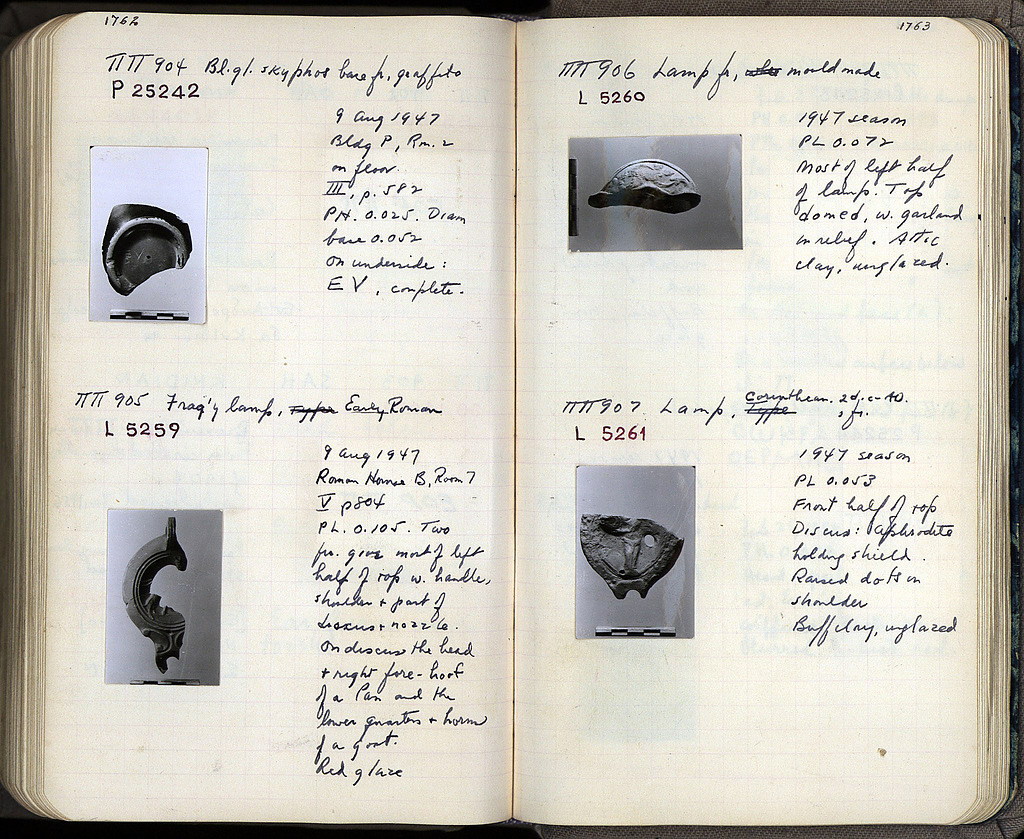 1762
ΠΠ 904 Bl. gl. skyphos base fr., graffito
P 25242
9 Aug 1947
Bldg P, Rm. 2
on floor.
III, p. 582
P.H. 0.025. Diam
base 0.052
On underside:
EV, complete.
ΠΠ 905 Frag'y lamp, Type Early Roman
L 5259
9 Aug 1947
Roman House B, Room 7
V p 804
P.L. 0.105. Two
frs. give most of left
half of top w. handle,
shoulder + part of
discus + nozzle.
On discus the head
+ right fore-hoof
of a Pan and the
lower quarters + horns
of a goat.
Red glaze
1763
ΠΠ 906 Lamp fr., mould made
L 5260
1947 season
PL 0.072
Most of left half
of lamp. Top
domed, w. garland
in relief. Attic
clay, unglazed.
Corinthian. 2d. c. A.D.
ΠΠ 907 Lamp, Type, fr.
L 5261
1947 season
PL 0.053
Front half of top
Discus: Aphrodite
holding shield.
Raised dots on
shoulder
Buff clay, unglazed